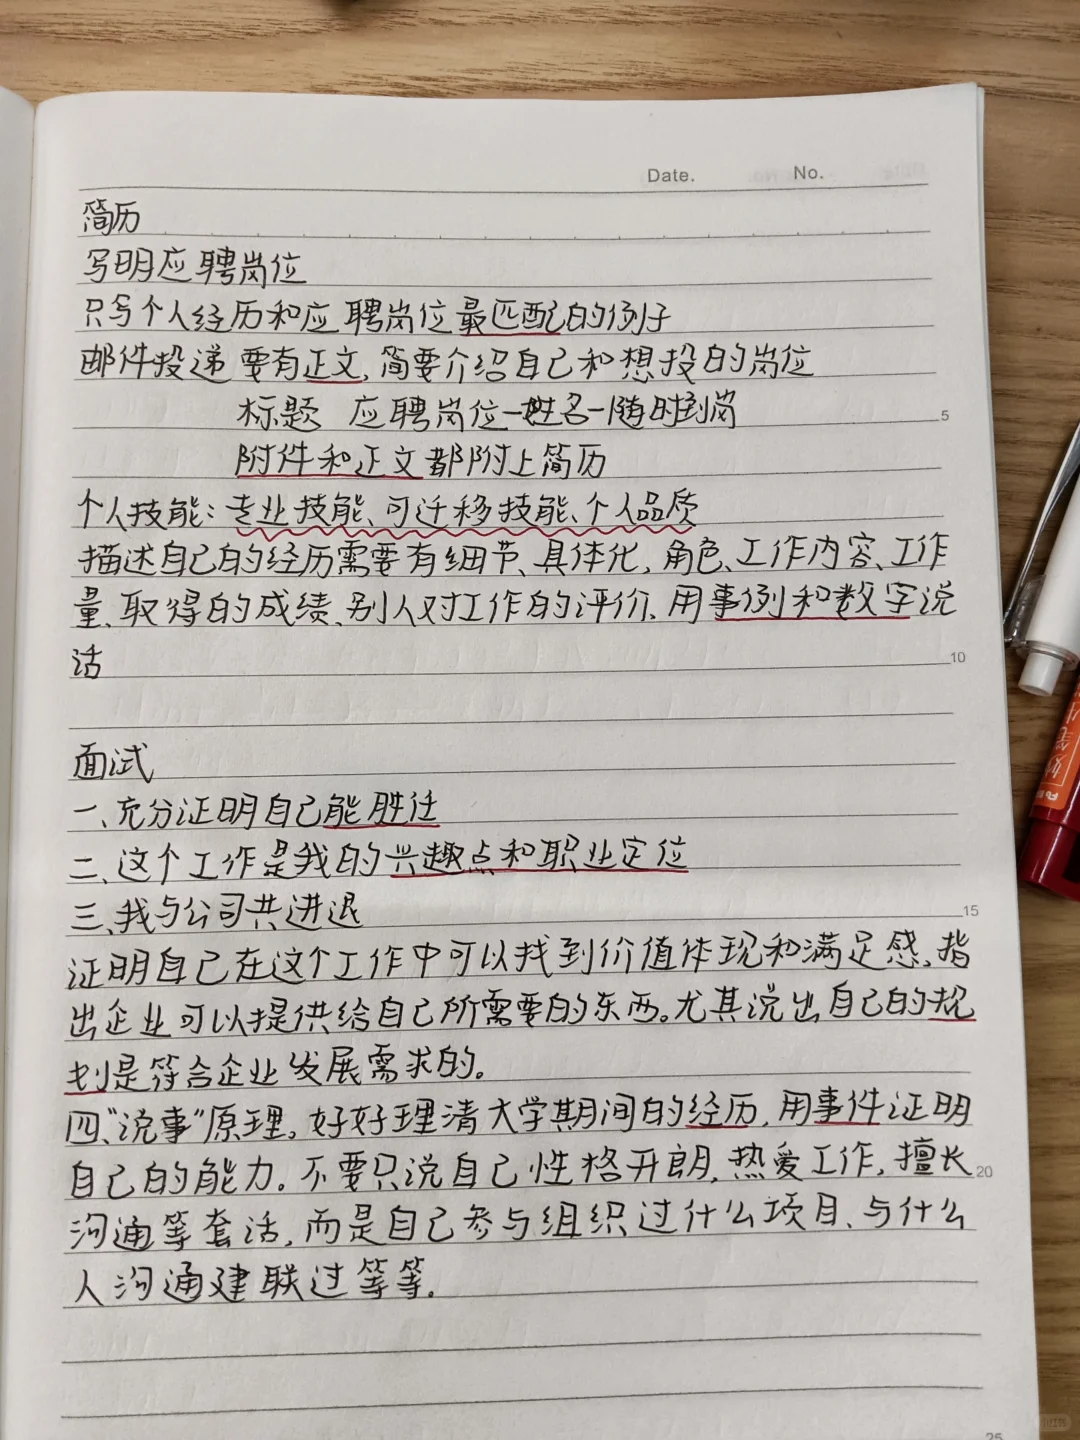 Date. No.
简历
写明应聘岗位
只写个人经历和应聘岗位最匹配的例子
邮件投递 要有正文,简要介绍自己和想投的岗位
标题 应聘岗位—姓名—随时到岗
5
附件和正文都附上简历
个人技能:专业技能、可迁移技能、个人品质
描述自己的经历需要有细节、具体化,角色、工作内容、工作
量、取得的成绩、别人对工作的评价、用事例和数字说
话
10
面试
一、充分证明自己能胜任
二、这个工作是我的兴趣点和职业定位
三、我与公司共进退
15
证明自己在这个工作中可以找到价值体现和满足感、指
出企业可以提供给自己所需要的东西。尤其说出自己的规
划是符合企业发展需求的。
四、“说事”原理。好好理清大学期间的经历,用事件证明
自己的能力.不要只说自己性格开朗,热爱工作,擅长
20
沟通等套话,而是自己参与组织过什么项目、与什么
人沟通建联过等等.
25